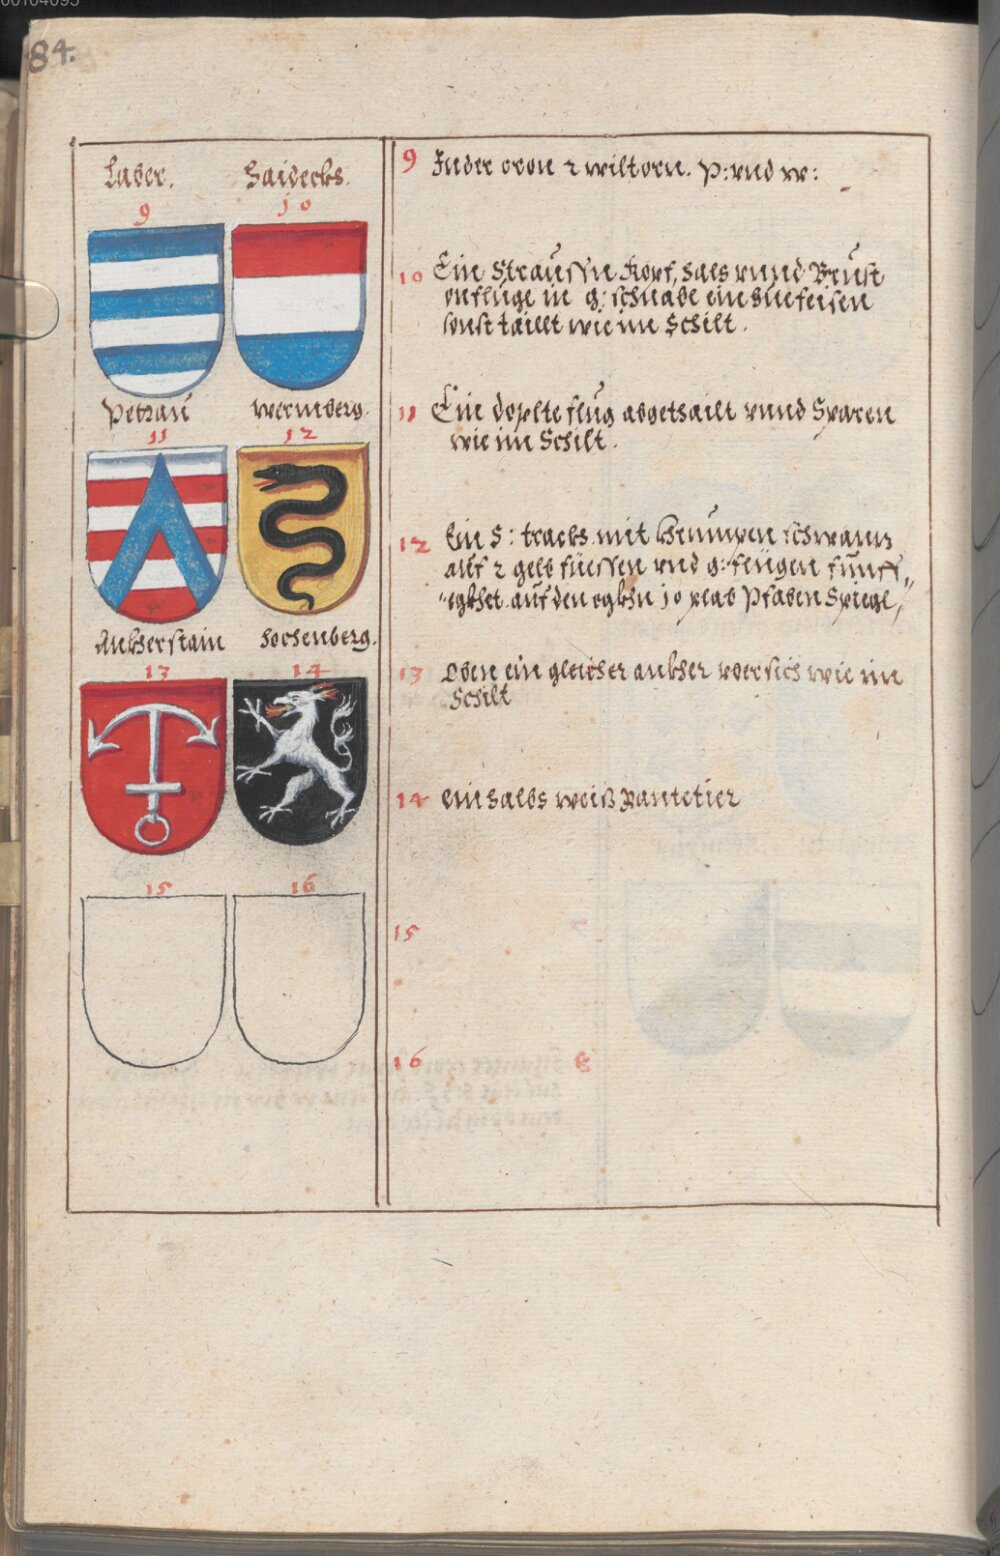 00104095
84.
Laber. Haideckh.
9 10
Petzaū Wernberg.
11 12
Ankherstain Hochenberg.
13 14
15 16
9 Inder cron 2 wiltorn. P: vnd w:
10 Ein Straussn Kopf, Hals vnnd Brust
on flüge in g: schnabl ein Huefeisen
sonst taillt wie im Schilt.
11 Ein doplte flug abgethailt vnnd Sparen
wie im Schilt.
12 Ein S: trackh mit krumpen schwannz
auf 2 gelb füessen vnd g: flügen fünff
egkhet auf den egkhn 10 plab Pfaben Spiegl
13 Oben ein gleicher ankher vbersich wie im
Schilt
14 ein halbs weiß Pantetier
15
16